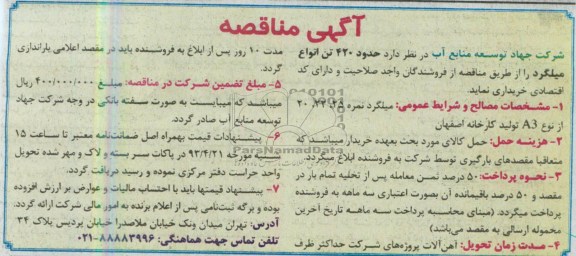 آگهی مناقصه
شرکت جهاد توسعه منابع آب در نظر دارد حدود ۴۲۰ تن انواع
میلگرد را از طریق مناقصه از فروشندگان واجد صلاحیت و دارای کد
اقتصادی خریداری نماید.
۱- مشخصات مصالح و شرایط عمومی: میلگرد نمره
از نوع A3 تولید کارخانه اصفهان
۲- هزینه حمل: حمل کالای مورد بحث بعهده خریدار میباشد که
متعاقبا مقصدهای بارگیری توسط شرکت به فروشنده ابلاغ میگردد.
۳- نحوه پرداخت: ۵۰ درصد ثمن معامله پس از تخلیه تمام بار در
مقصد و ۵۰ درصد باقیمانده آن بصورت اعتباری سه ماهه به فروشنده
پرداخت میگردد. (مبنای محاسبه پرداخت سه ماهه تاریخ آخرین
محموله ارسالی به مقصد می‌باشد)
۴- مدت زمان تحویل: آهن‌آلات پروژه‌های شرکت حداکثر ظرف
مدت ۱۰ روز پس از ابلاغ به فروشنده باید در مقصد اعلامی باراندازی
گردد.
۵- مبلغ تضمین شرکت در مناقصه: مبلغ ۴۰۰/۰۰۰/۰۰۰ ریال
میباشد که میبایست به صورت سفته بانکی در وجه شرکت جهاد
توسعه منابع آب صادر گردد.
۶- پیشنهادات قیمت بهمراه اصل ضمانت‌نامه معتبر تا ساعت ۱۵
شنبه مورخه ۹۳/۴/۲۱ در پاکت سربسته و لاک و مهر شده تحویل
واحد حراست دفتر مرکزی نموده و رسید دریافت گردد.
۷- پیشنهاد قیمتها باید با احتساب مالیات و عوارض بر ارزش افزوده
بوده و برگه ثبت‌نامی پس از اعلام برنده به امور مالی شرکت ارائه گردد.
آدرس: تهران میدان ونک خیابان ملاصدرا خیابان پردیس پلاک ۳۴
تلفن تماس جهت هماهنگی: ۸۸۸۸۳۹۹۶-۰۲۱
ParsNamadData